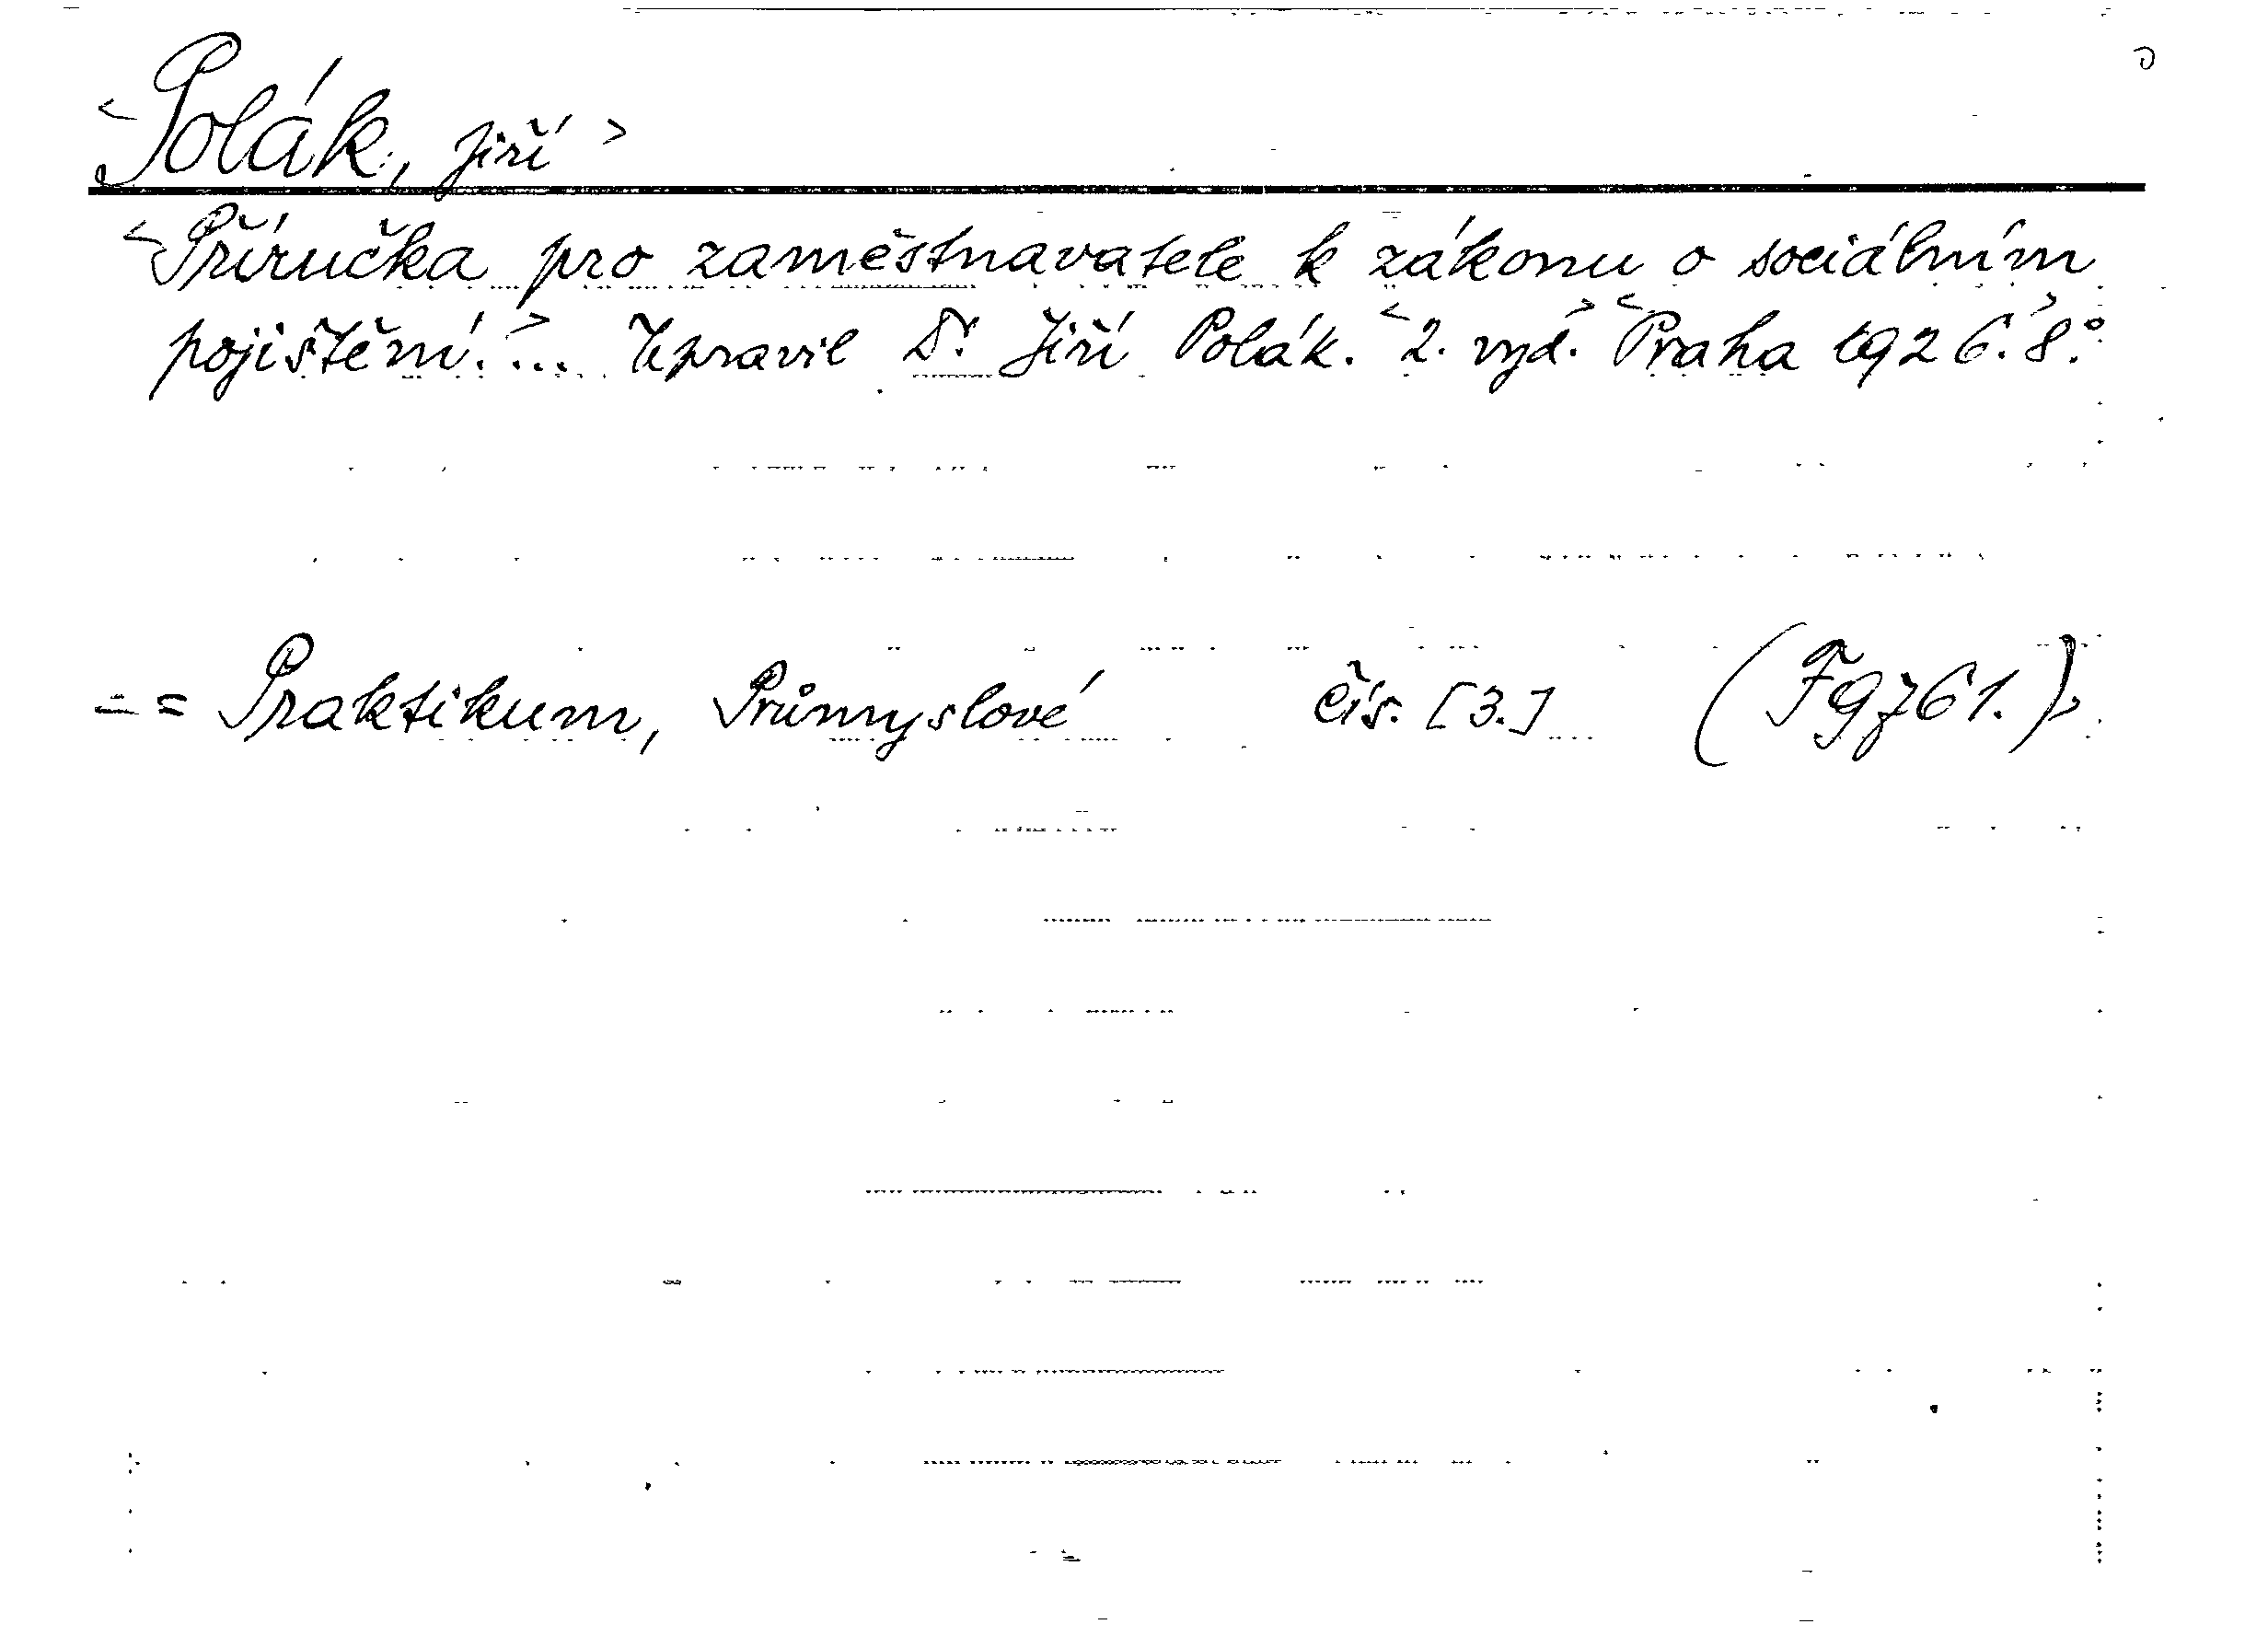 <Polák, Jiří>
<Příručka pro zaměstnavatele k zákonu o sociálním
pojištění.>... Upravil Dr. Jiří Polák. <2. vyd.> <Praha 1926.> 8.°
= = Praktikum, Průmyslové čís. [3.] (F9761.)>